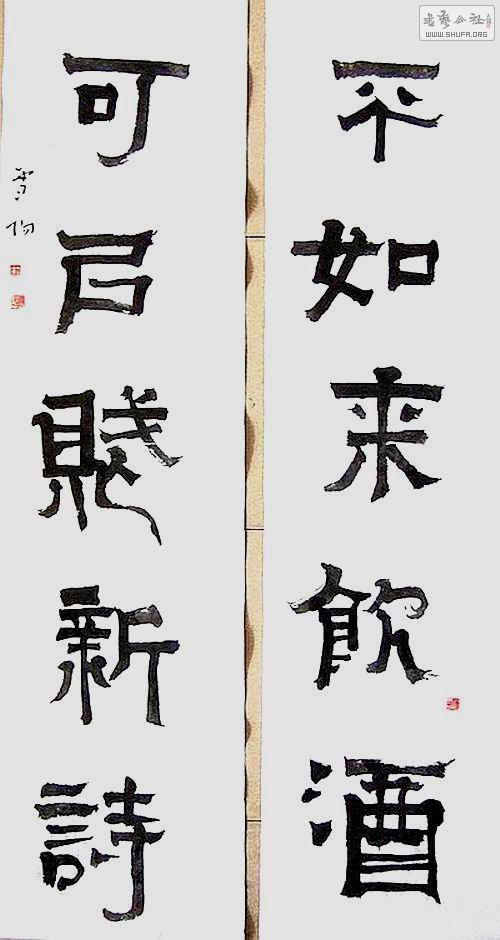 書藝公社
WWW.SHUFA.ORG
不如来飲酒
可㠯賦新詩